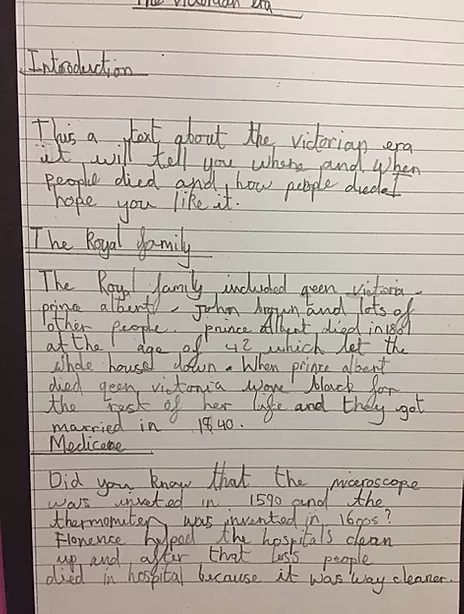 The Victorian era
Introduction
This a text about the victorian era
it will tell you where and when
people died and how people died I
hope you like it.
The Royal family
The Royal family included qeen victoria,
prince albert, John brown and lots of
other people. prince Albert died in 1861
at the age of 42 which let the
whole house down. When prince albert
died qeen victoria wore black for
the rest of her life and they got
married in 1840.
Medicene
Did you know that the miceroscope
was inveted in 1590 and the
thermometer was invented in 1600s?
Florence helped the hospitals clean
up and after that less people
died in hospital because it was way cleaner.